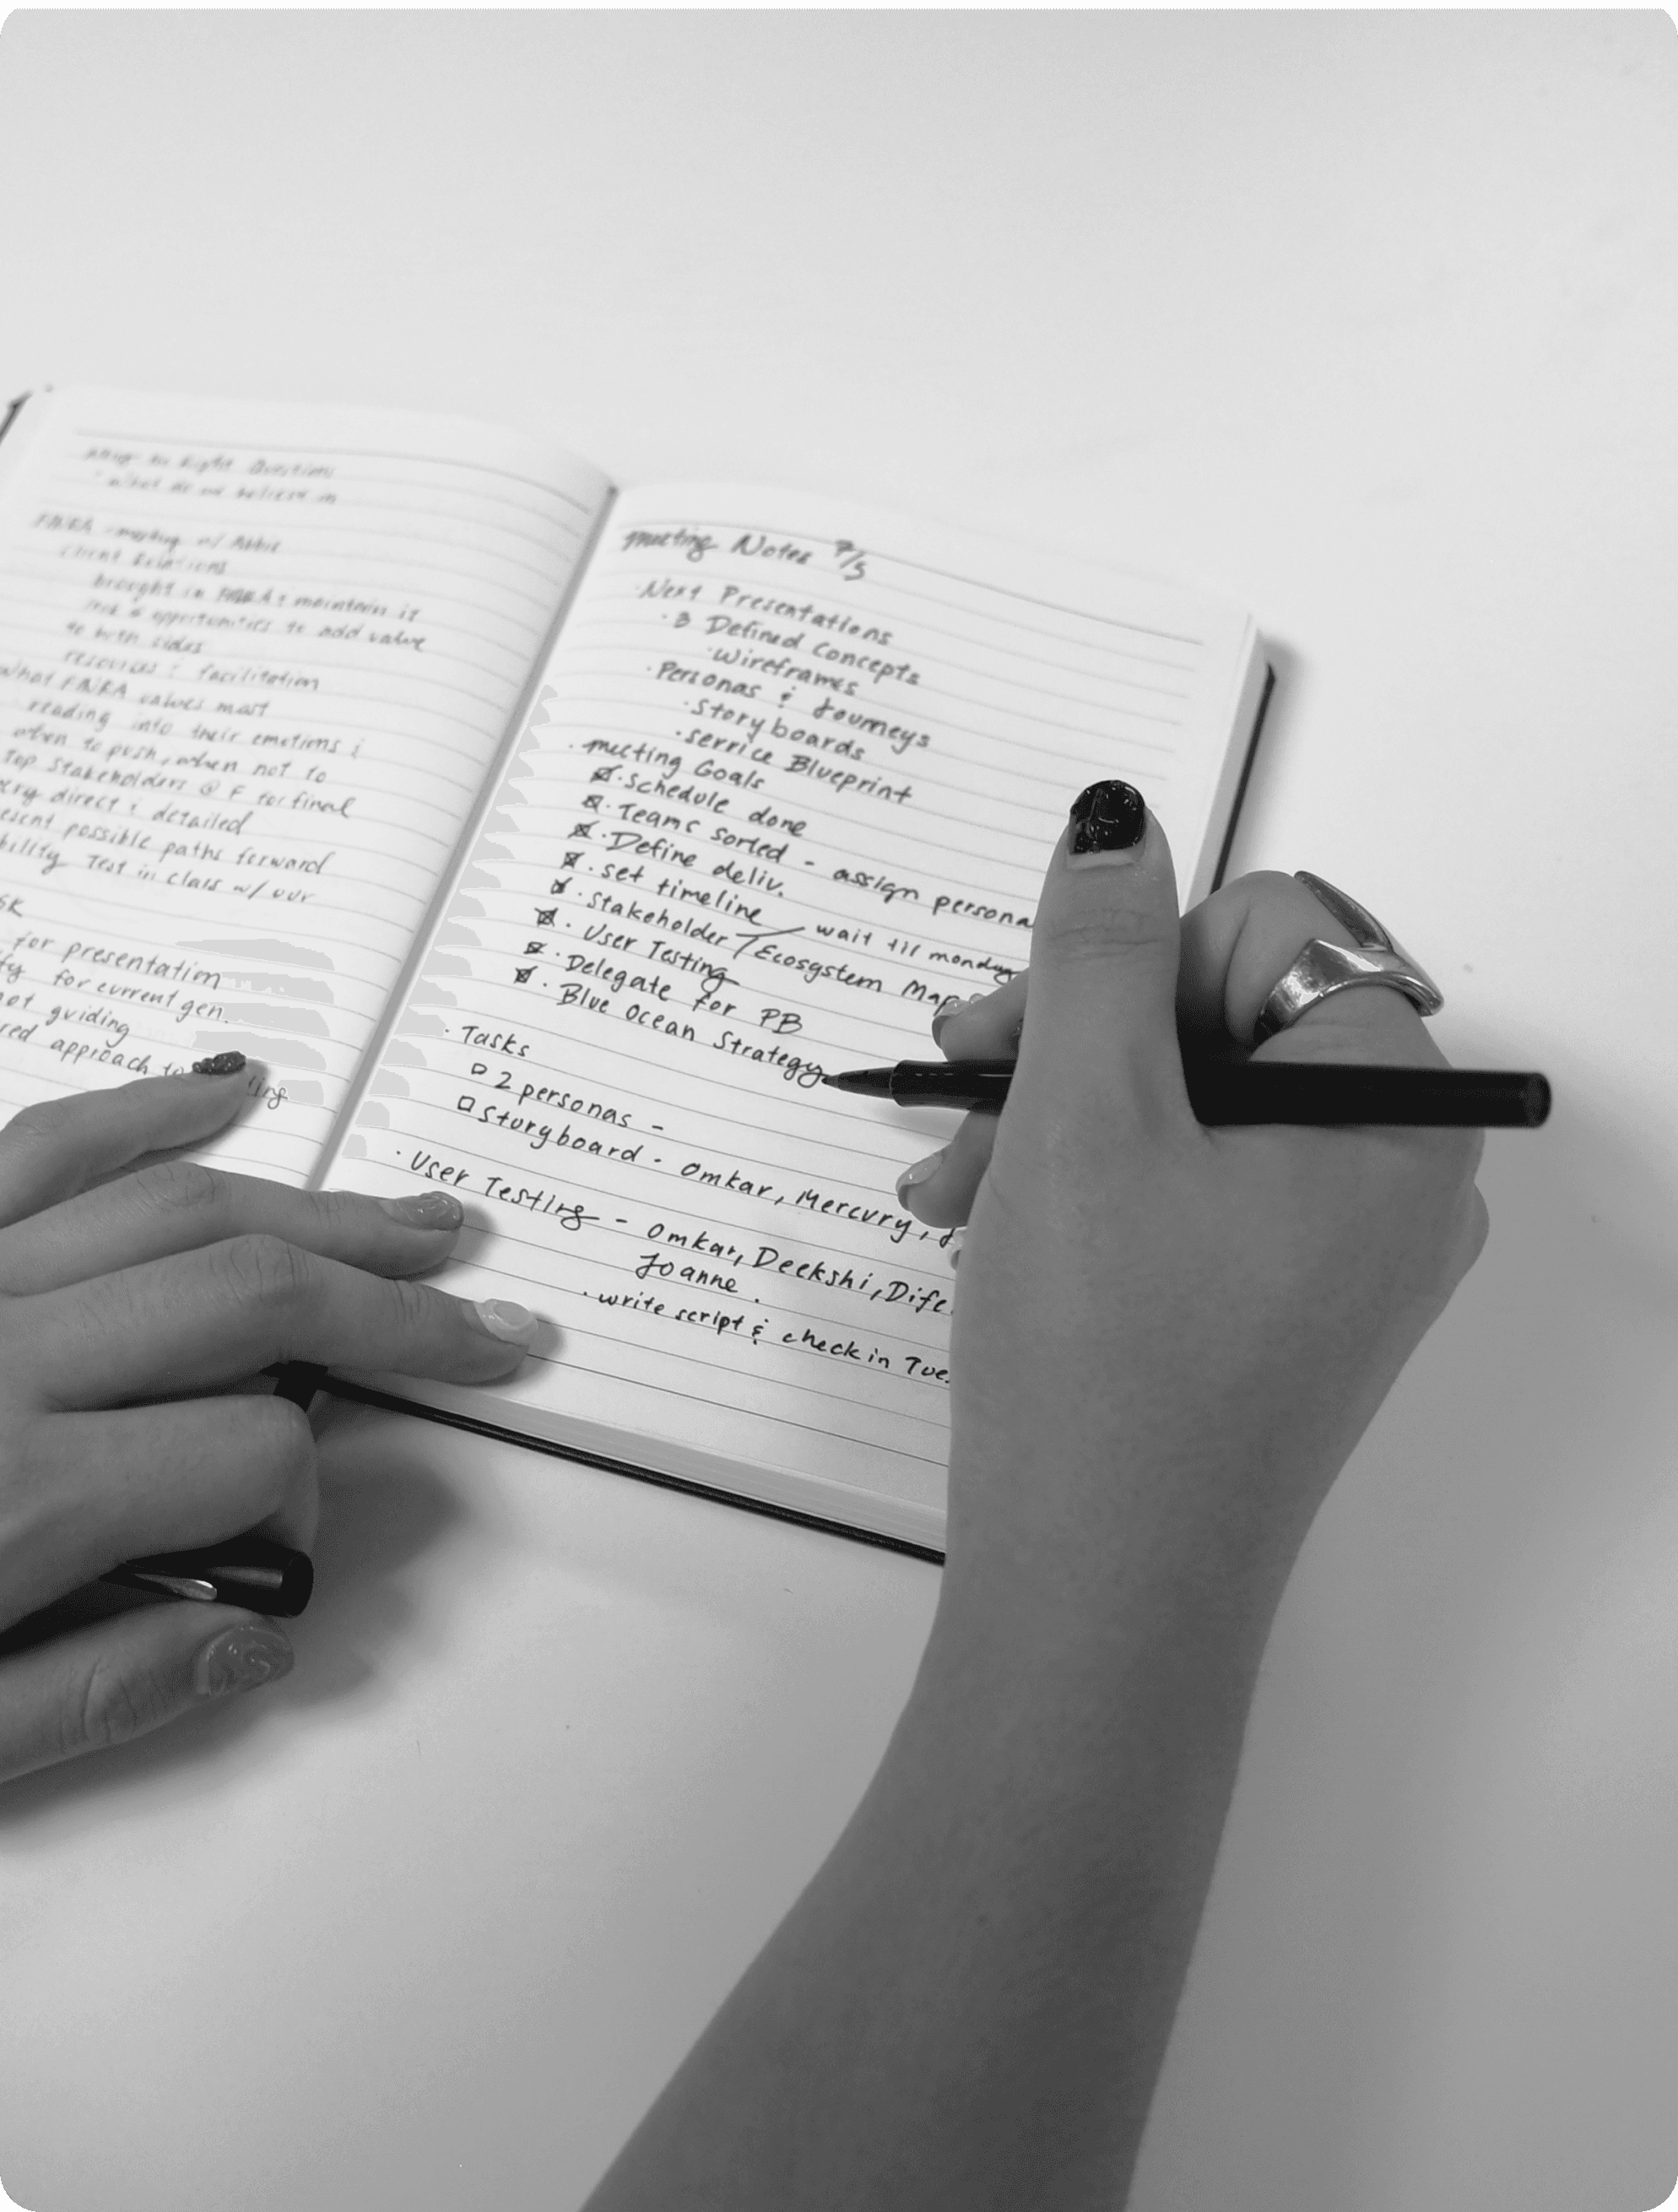 Right Questions
FINRA - meeting w/ Abbie
Client Relations
brought in FINRA & maintain it
opportunities to add value
to both sides
resources & facilitation
What FINRA values most
reading into their emotions &
when to push, when not to
Top Stakeholders @ F for final
direct & detailed
possible paths forward
Test in class w/ our
for presentation
for current gen.
not guiding
approach to
meeting Notes 7/5
· Next Presentations
· 3 Defined Concepts
· Wireframes
· Personas & Journeys
· Storyboards
· Service Blueprint
· meeting Goals
☒ · Schedule done
☒ · Teams sorted - assign persona
☒ · Define deliv.
☒ · set timeline wait til monday
☒ · Stakeholder / Ecosystem Map
☒ · User Testing
☒ · Delegate for PB
☒ · Blue Ocean Strategy
· Tasks
☐ 2 personas -
☐ Storyboard - Omkar, Mercury,
· User Testing - Omkar, Deekshi,
Joanne.
· write script & check in Tue